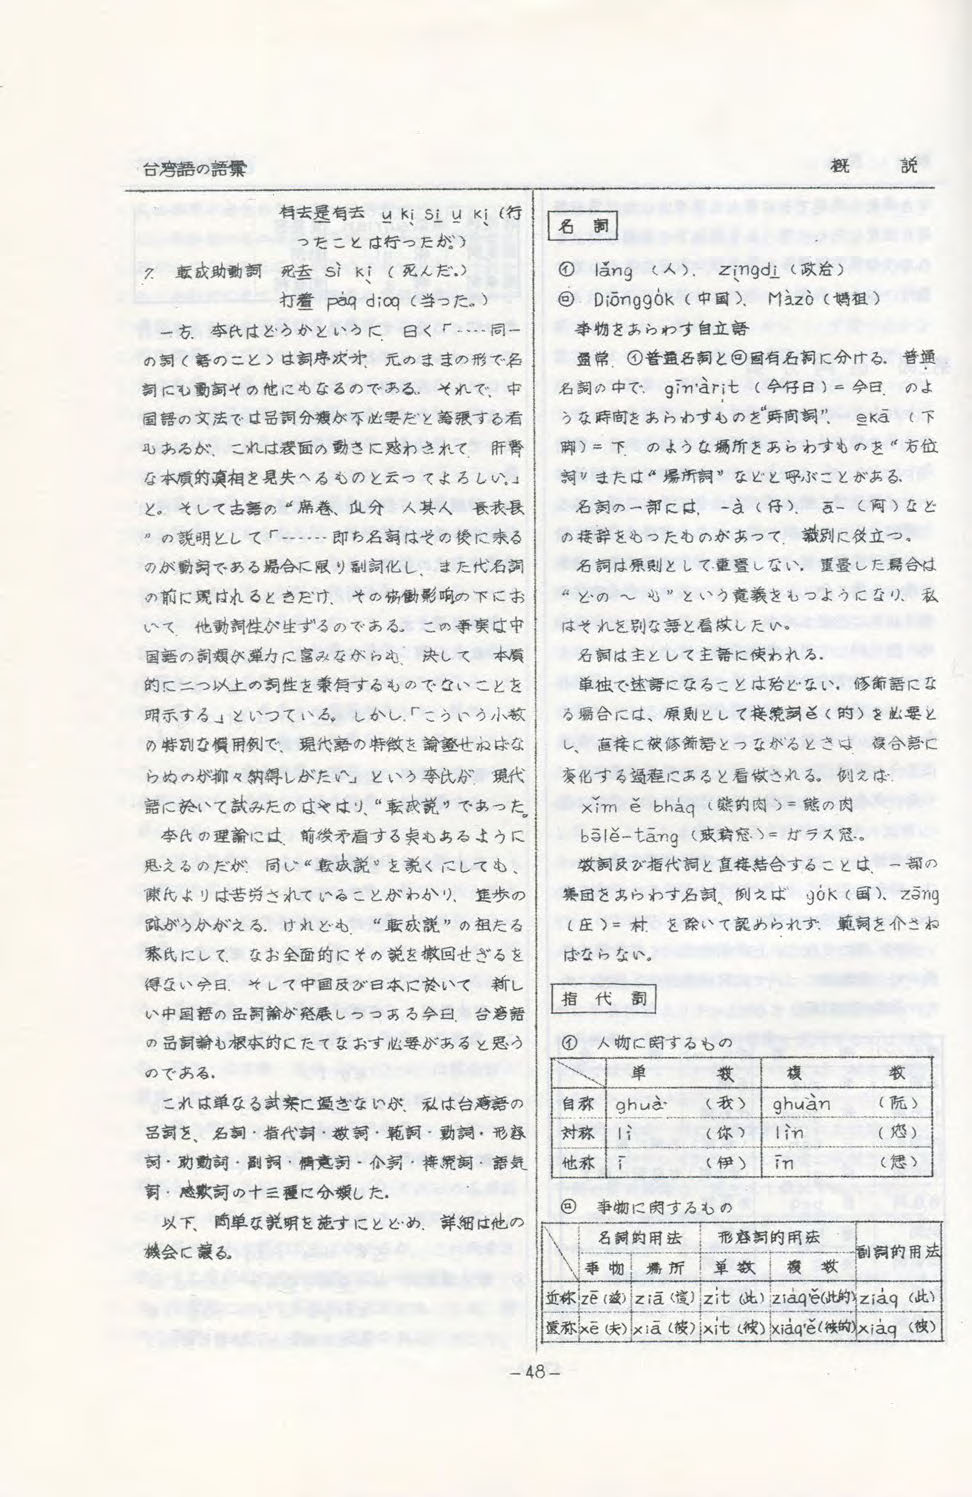 台湾語の語彙
概 説
有去是有去 u ki si u ki (行
ったことは行ったが。)
7. 転成助動詞 死去 sì ki (死んだ。)
打着 páq dioq (当った。)
一方、李氏はどうかというに、曰く「‥‥同一
の詞(語のこと)は詞序次才、元のままの形で名
詞にも動詞その他にもなるのである。それで、中
国語の文法では品詞分類が不必要だと論張する者
もあるが、これは表面の動きに惑わされて、肝腎
な本質的真相を見失へるものと云ってよろしい。」
と。そして古語の“席巻、瓜分、人其人、長我長
”の説明として「‥‥‥即ち名詞はその後に来る
のが動詞である場合に限り副詞化し、また代名詞
の前に現はれるときだけ、その協働影响の下にお
いて、他動詞性が生ずるのである。この事実は中
国語の詞類が弾力に富みながらも、決して、本質
的に二つ以上の詞性を兼有するものでないことを
明示する」といつている。しかし、「こういう小数
の特別な慣用例で、現代語の特徴を論證せねばな
らぬのが抑々納得しがたい。」という李氏が、現代
語に於いて試みたのはやはり、“転成説”であった。
李氏の理論には、前後矛盾する点もあるように
思えるのだが、同じ“転成説”を説くにしても、
陳氏よりは苦労されていることがわかり、進歩の
跡がうかがえる。けれども、“転成説”の祖たる
黎氏にして、なお全面的にその説を撤回せざるを
得ない今日、そして中国及び日本に於いて、新し
い中国語の品詞論が発展しつつある今日、台湾語
の品詞論も根本的にたてなおす必要があると思う
のである。
これは単なる試案に過ぎないが、私は台湾語の
品詞を、名詞・指代詞・数詞・範詞・動詞・形容
詞・助動詞・副詞・情意詞・介詞・接続詞・語気
詞・感歎詞の十三種に分類した。
以下、簡単な説明を施すにとどめ、詳細は他の
機会に譲る。
名 詞
㋑ lǎng (人)、 zìngdi (政治)
㋺ Diōnggȯk (中国)、 Màzò (媽祖)
事物をあらわす自立語
通常、㋑普通名詞と㋺固有名詞に分ける。普通
名詞の中で、gīn'àrit (今仔日)=今日、のよ
うな時間をあらわすものを“時間詞”、ekā (下
脚)=下、のような場所をあらわすものを“方位
詞”または“場所詞”などと呼ぶことがある。
名詞の一部には、-à (仔)、ā- (阿) など
の接辞をもったものがあって、識別に役立つ。
名詞は原則として重畳しない。重畳した場合は
“どの~も”という意義をもつようになり、私
はそれを別な語と看做したい。
名詞は主として主語に使われる。
単独で述語になることは殆どない。修飾語にな
る場合には、原則として接続詞ě(的)を必要と
し、直接に被修飾語とつながるときは、複合語に
変化する過程にあると看做される。例えば、
xǐm ě bháq (熊的肉)=熊の肉
bōlě-tāng (玻璃窓)=ガラス窓。
数詞及び指代詞と直接結合することは、一部の
集団をあらわす名詞、例えば gȯk(国)、zāng
(庄)=村、を除いて認められず、範詞を介さね
ばならない。
指 代 詞
㋑ 人物に関するもの
単 数 複 数
自称 ghuà (我) ghuàn (阮)
対称 lì (你) lìn (恁)
他称 ī (伊) īn (㤓)
㋺ 事物に関するもの
名詞的用法 形容詞的用法 副詞的用法
事物 場所 単数 複数
近称 zē (這) ziā (這) zit (此) ziáq'ě(此的) ziáq (此)
遠称 xē (夫) xiā (彼) xit (彼) xiáq'ě(彼的) xiáq (彼)
-48-